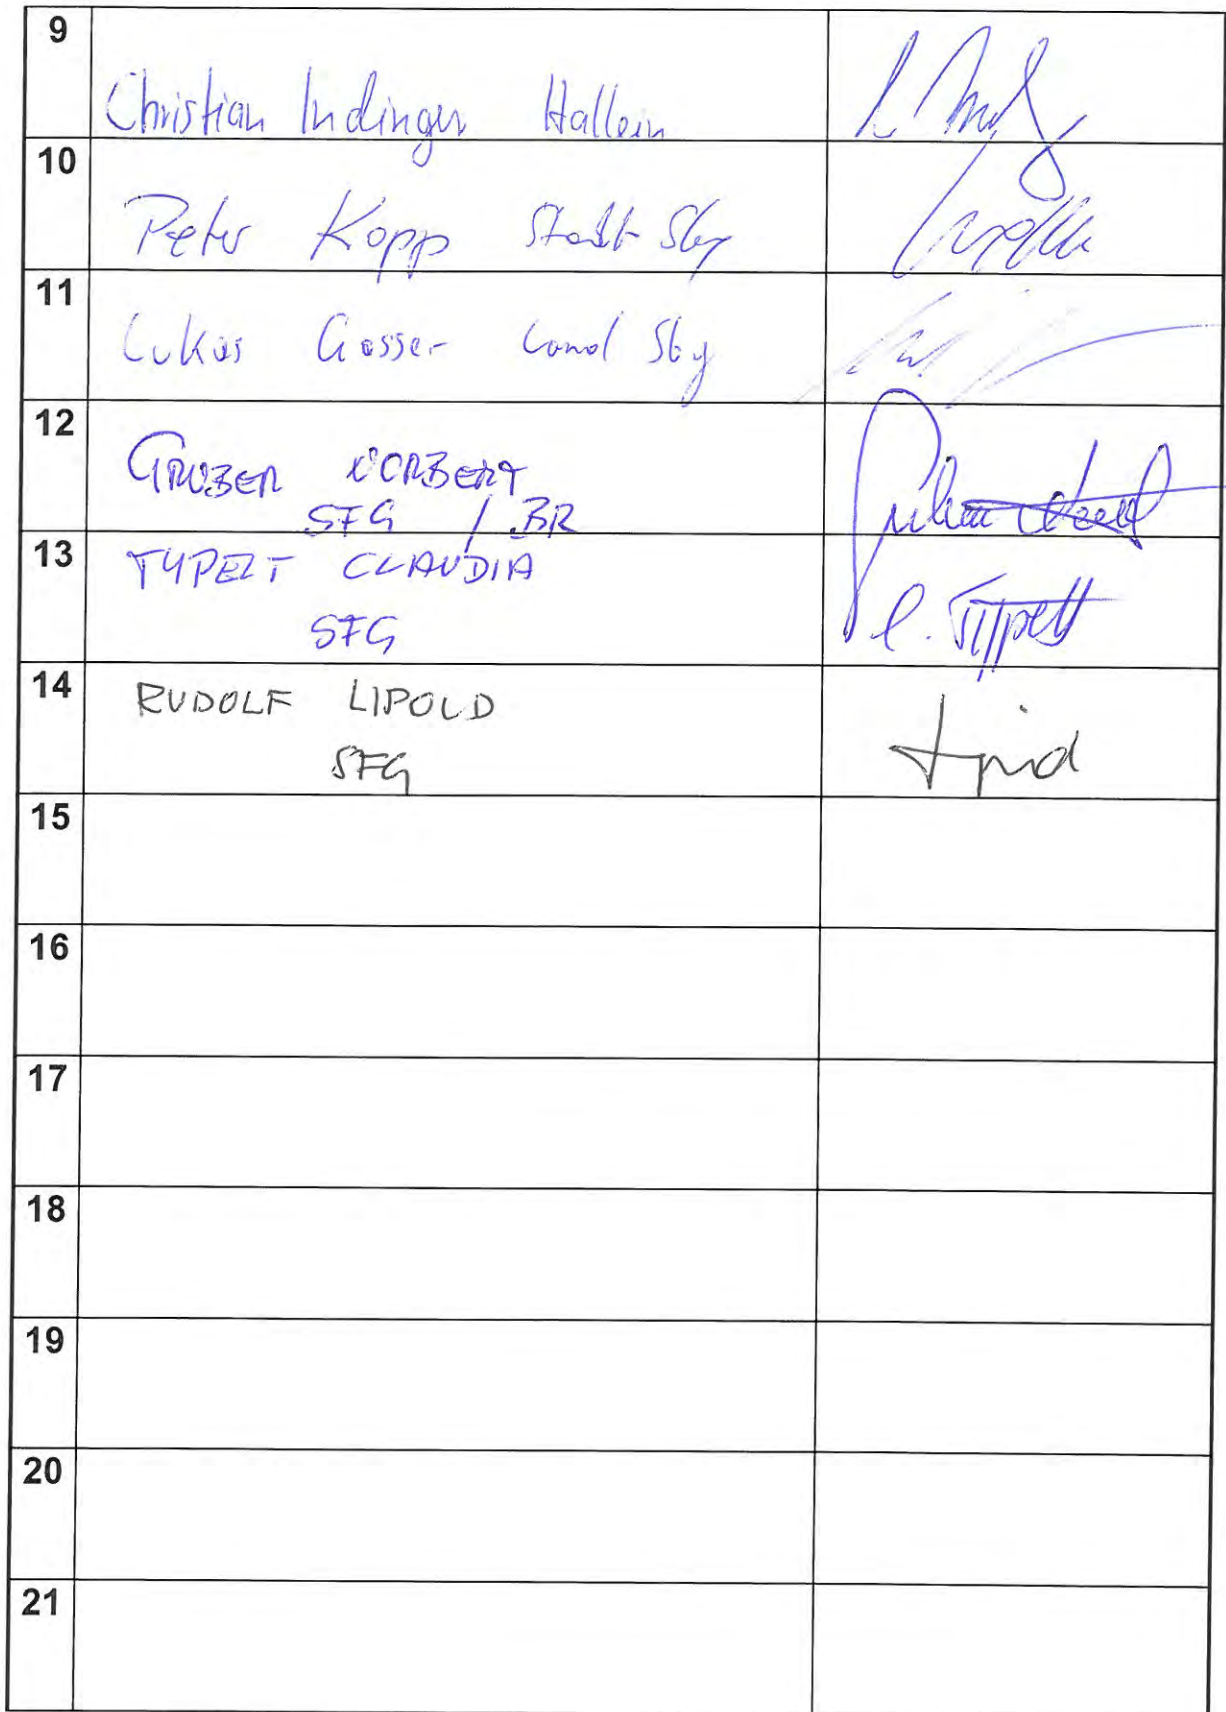 9
Christian Indinger Hallein
10
Peter Kopp Stadt Sbg
11
Lukas Gasser Land Sbg
12
GRUBER NORBERT
SFG / BR
13
TYPELT CLAUDIA
SFG
C. Typpelt
14
RUDOLF LIPOLD
SFG
15
16
17
18
19
20
21